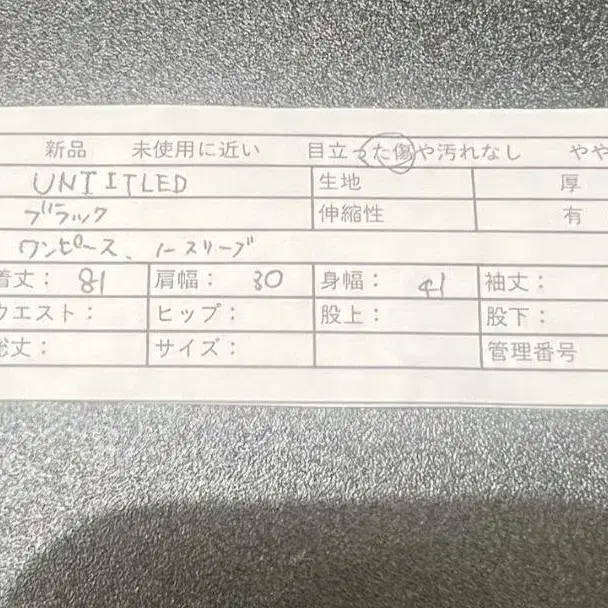 新品 未使用に近い 目立った傷や汚れなし やや
UNTITLED 生地 厚
ブラック 伸縮性 有
ワンピース、ノースリーブ
着丈： 81 肩幅： 30 身幅： 41 袖丈：
ウエスト： ヒップ： 股上： 股下：
総丈： サイズ： 管理番号